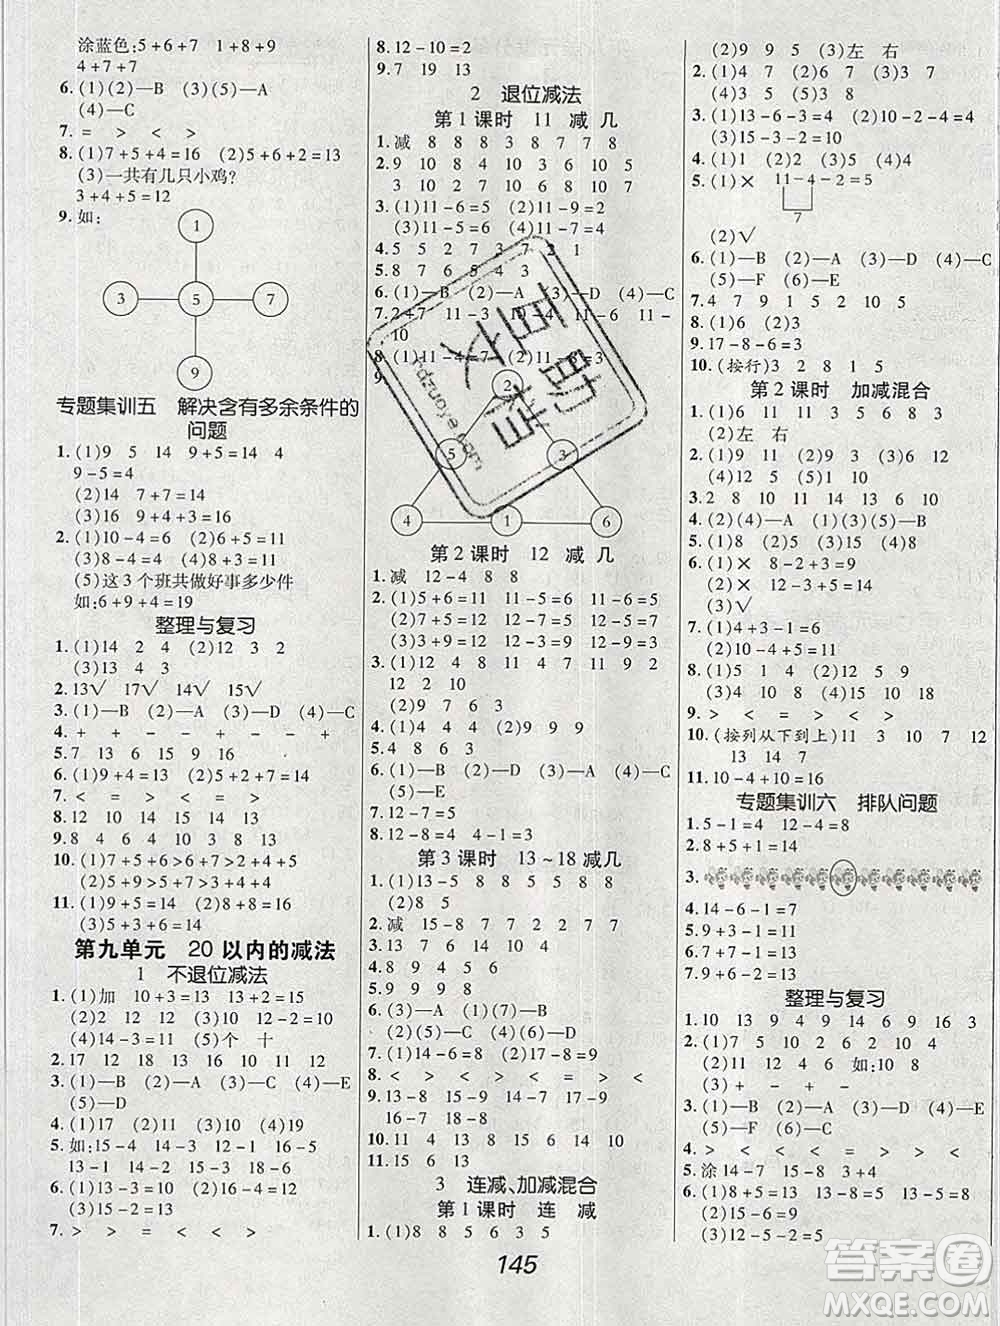 涂蓝色:5+6+7　1+8+9
4+7+7
6.(1)(2)—B　(3)(5)—A
(4)—C
7.=　>　<　>　<
8.(1)7+5+4=16　(2)5+6+2=13
(3)一共有几只小鸡?
3+4+5=12
9.如:
1
3　5　7
9
专题集训五　解决含有多余条件的
问题
1.(1)9　5　14　9+5=14　4
9-5=4
(2)14　7+7=14
(3)16　9+4+3=16
2.(1)10-4=6　(2)5+6=11
(3)5+6=11　(4)9-5=4
(5)这3个班共做好事多少件
如:6+9+4=19
整理与复习
1.(1)14　2　4　(2)12　3　2
(3)13　4　3
2.13√　17√　14√　15√
3.(1)—B　(2)—A　(3)—D　(4)—C
4.+　+　-　+　-　+　-
5.7　13　15　9　16
6.(1)9+4=13　(2)5+4+2=11
7.<　=　>　<　>　<
8.12　10　14　15　14　13
9.8　4　13　9　6　13
10.(1)7+5+6>7+2+4+5
(2)5+4+7=9+7
11.(1)9+5=14　(2)8+8=16
(3)5+3+6=14
第九单元　20以内的减法
1　不退位减法
1.(1)加　10+3=13　13+2=15
(2)2　12　10　(3)10　12-2=10
(4)14-3=11　(5)个　十
2.17　12　18　10　11　12
3.(1)—B　(2)—A　(3)—C　(4)—E
(5)—D
4.(1)17　(2)12　(3)10　(4)19
5.如:15-4　14-3　12-1　16-5
13-1　14-2　17-5　15-3
6.(1)13-3=10　(2)18-5=13
(3)15-2=13
7.>　>　=　<　=　>　<
8.12-10=2
9.7　19　13
2　退位减法
第1课时　11减几
1.减　8　8　8　3　8　7　7　8
2.9　10　8　9　4　8　6
3　10　2　8　7　10　9
3.(1)11-6=5　(2)11-9=2
(3)11-4=7　(4)11-7=4
4.5　5　2　8　3　7　7　2　1
5.8　7　6　5　4　3
6.(1)—B　(2)—A　(3)—D　(4)—C
2
5　3
4　1　6
第2课时　12减几
1.减　12-4　8　8
2.(1)5+6=11　11-5=6　11-6=5
(2)7+5=12　12-5=7　12-7=5
(3)3+9=12　12-3=9　12-9=3
3.(1)12　4　8　11　11　7　9　2
12　2　10
(2)9　7　6　3
4.(1)1　9　4　(2)9　9　9
5.4　8　9　7　8　6
6.(1)—B　(2)—D　(3)—A　(4)—C
(5)—E
7.12-7=5
8.12-8=4　4-1=3
第3课时　13~18减几
1.(1)13-5　8　8　5　8　5　8　8
(2)8　5
2.减　15-8　7　7　7　7　8　7
3.4　8　9　6　5　4
4.6　9　8　7　6　5　4
5.9　4　9　9　8
6.(3)—A　(1)(7)—B
(2)(5)—C　(4)(6)—D
7.(1)14-6=8　(2)17-8=9
8.<　>　<　>　<　=　>　<
9.13-6　14-7　15-8　17-9
16-7　18-8
10.11　4　13　5　4　14　6　10
11.15　6　16
3　连减、加减混合
第1课时　连减
1.(1)8　8　5　6　3　5
(2)9　9　5　(3)左　右
2.(1)4　7　(2)6　7　(3)3　7
(4)2　5　(5)3　8
3.(1)13-6-3=4　(2)10-2-4=4
(3)15-3-2=10
4.(1)1　(2)2　(3)5　(4)4
5.(1)×　11-4-2=5
7
(2)√
6.(1)—B　(2)—A　(3)—D　(4)—C
(5)—F　(6)—E
7.4　7　9　1　5　2　10　5
8.(1)6　(2)3
9.17-8-6=3
10.(按行)3　2　8　1　5
第2课时　加减混合
1.(1)6　11　11　3　5　6　8　3
(2)左　右
2.(1)9　11　(2)9　9　(3)6　6
(4)12　5　(5)1　9
3.2　8　10　7　14　13　6　10
4.(2)(4)—A　(1)(3)—B
5.(1)8　(2)5　(3)8　(4)9
6.(1)×　8-2+3=9
(2)×　12-3+5=14
(3)√
7.(1)4+3-1=6
(2)10-4+5=11
8.(1)5　1　4　(2)12　5　9
(3)4　10　16　(4)15　10　18
9.>　<　>　=　<　>
10.(按列从下到上)11　3　10　7　12
13　14　7
11.10-4+10=16
专题集训六　排队问题
1.5-1=4　12-4=8
2.8+5+1=14
3.
4.14-6-1=7
5.9+3-1=11
6.4+6+1=11
7.9+6-2=13
整理与复习
1.10　13　9　4　9　14　9　16　3
2.(1)7　5　10　2　6　2　10　4
(2)11　12　4　6　如:10　8
(3)+　-　+　-　-
3.(1)—B　(2)—A　(3)—D　(4)—E
(5)—C　(6)—F
4.>　<　<　>　=　=　>　<
5.涂14-7　15-8　3+4
6.(1)8+5=13　13-5=8
(2)11-5=6
(3)15-8-2=5
145
答案圈
MXQE.COM